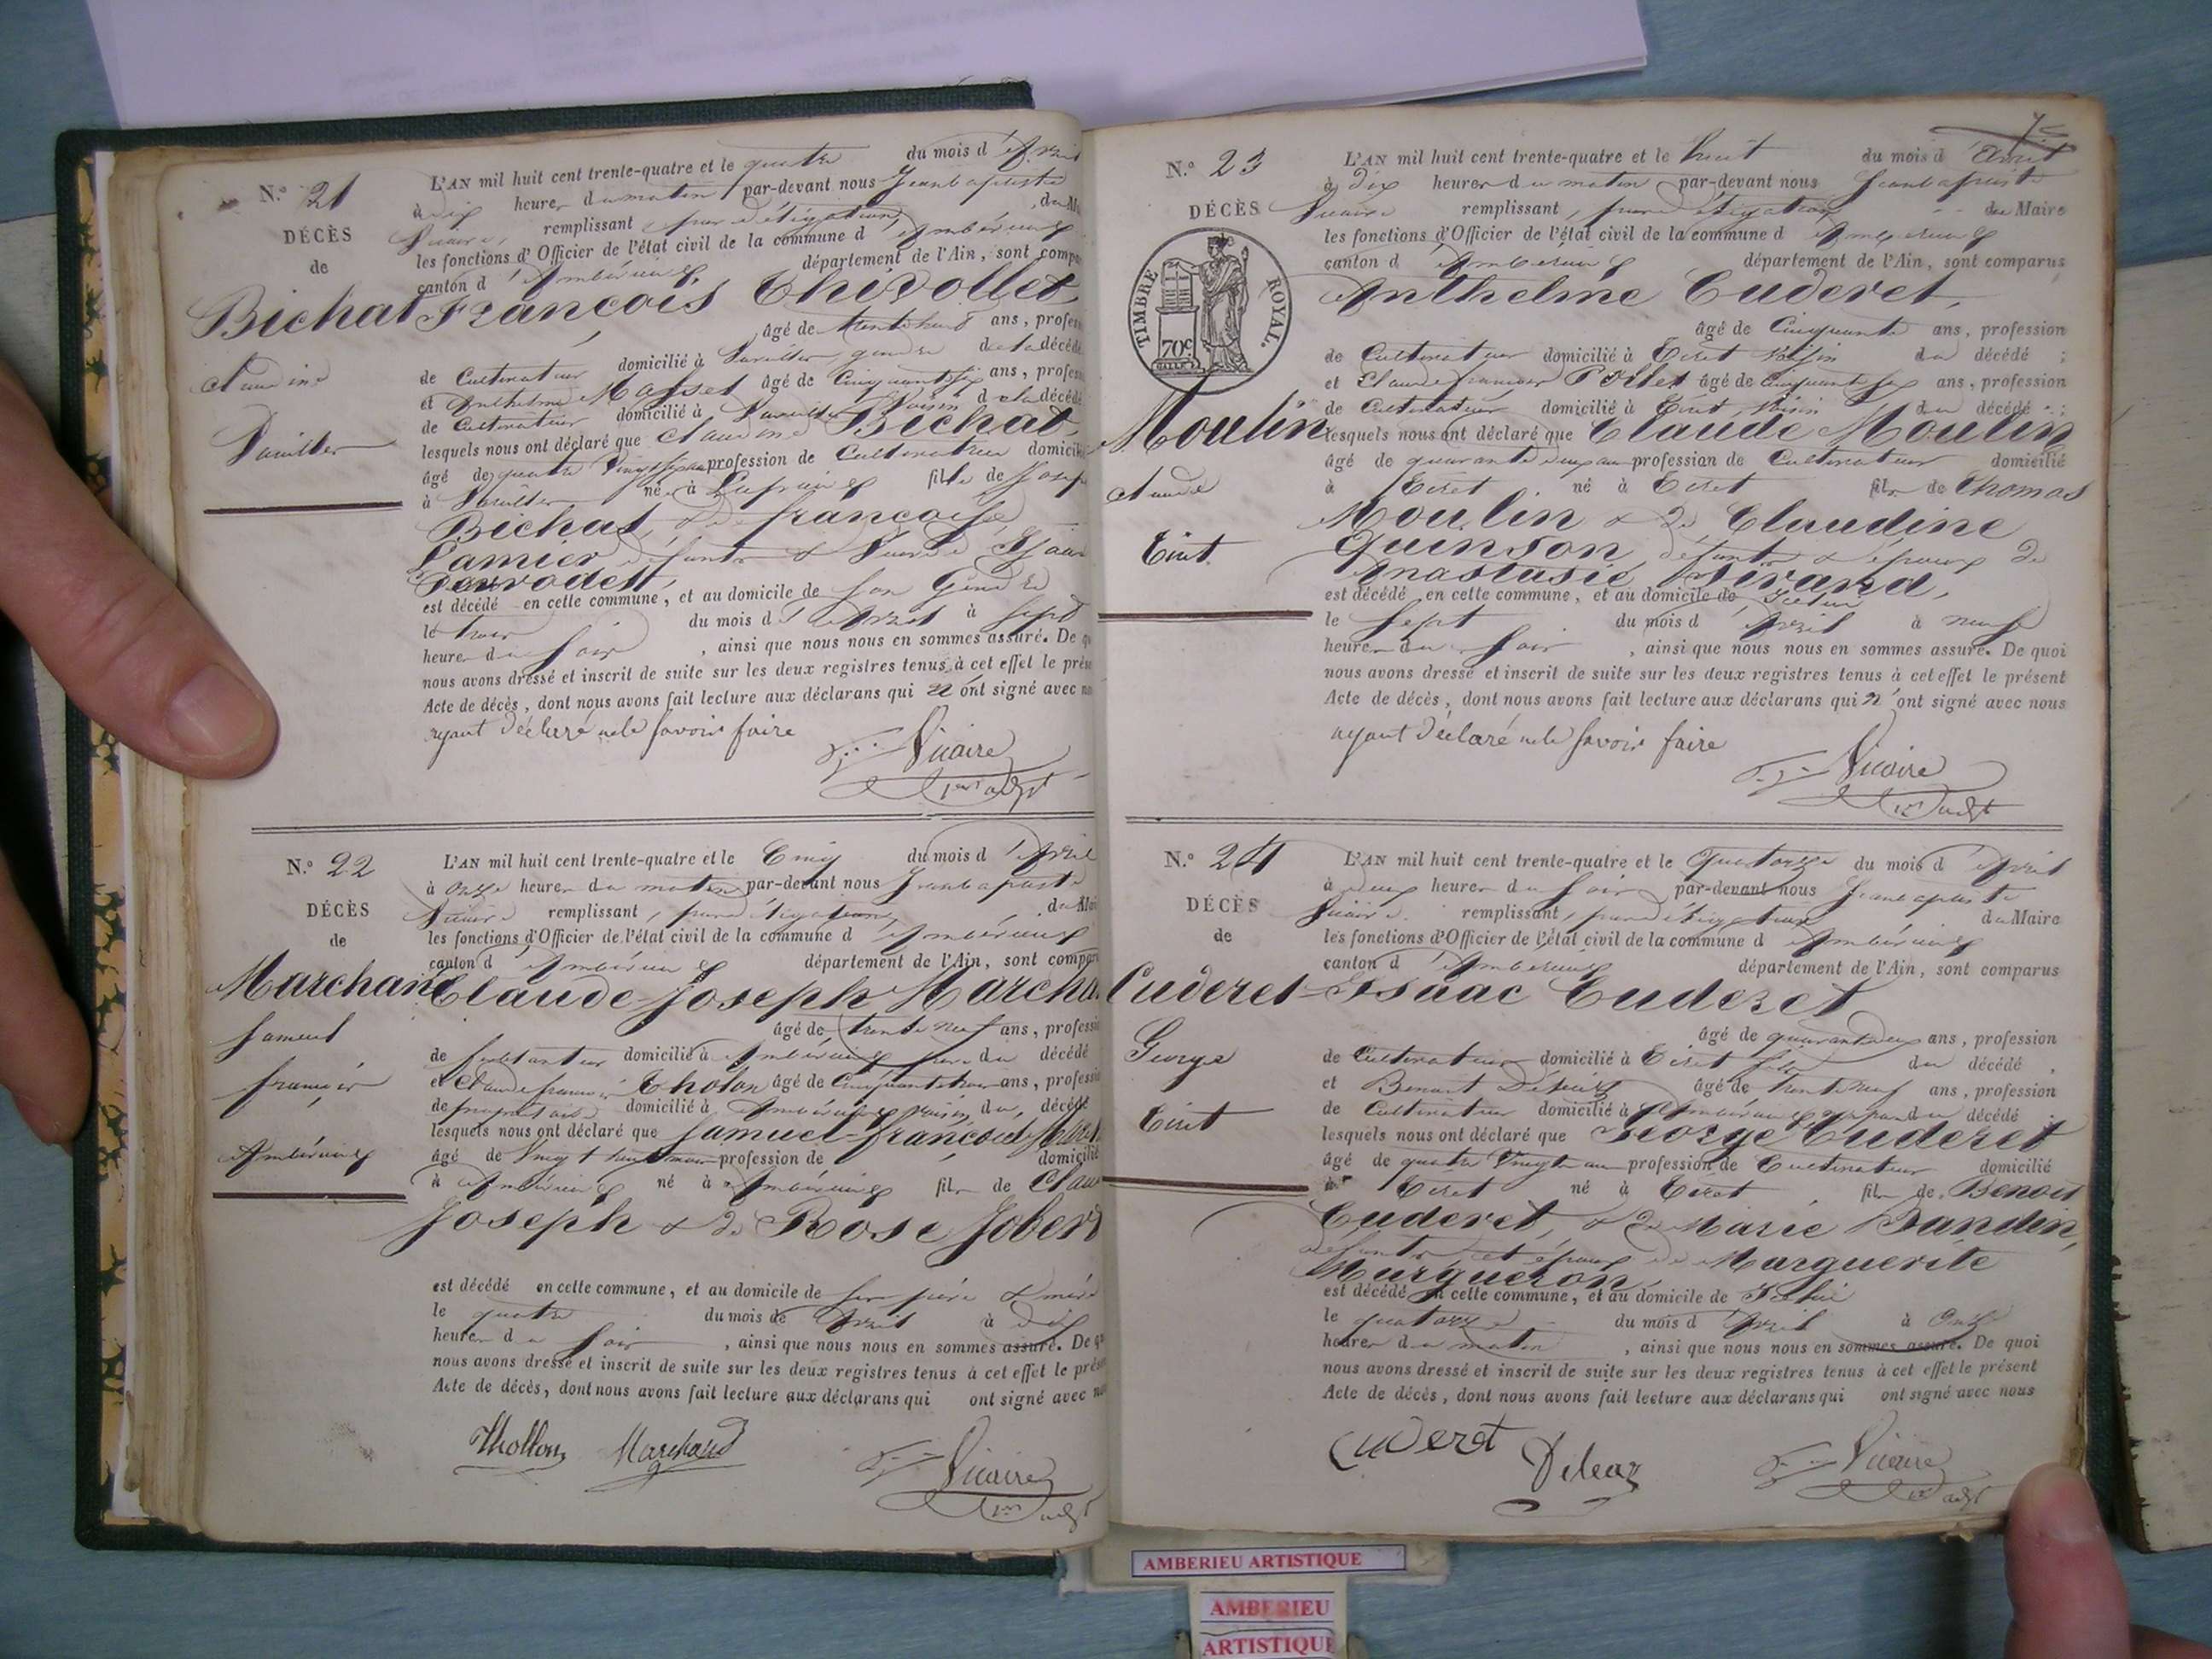 N.º 21
DÉCÈS
de
Bichat
Claudine
Vareilles
L'AN mil huit cent trente-quatre et le quatre du mois d'Avril
à dix heures du matin par-devant nous Jean baptiste
Vicaire, remplissant par délégation, du
les fonctions d'Officier de l'état civil de la commune d'Ambérieux
canton d'Ambérieux département de l'Ain, sont
François Thivollet
âgé de ans,
de Cultivateur domicilié à gendre de la décédé
et Anthelme Masset âgé de Cinquante six ans,
de Cultivateur domicilié à Voisin de la décédé
lesquels nous ont déclaré que Claudine Bichat
âgé de quatre Vingt profession de Cultivatrice
à née à fille de
Bichat, & de françoise
Lamier défunts & Veuve d
est décédé en cette commune, et au domicile de son Gendre
le trois du mois d'Avril à sept
heures du soir, ainsi que nous nous en sommes assuré. De
nous avons dressé et inscrit de suite sur les deux registres tenus à cet effet le
Acte de décès, dont nous avons fait lecture aux déclarans qui n'ont signé avec
ayant déclaré ne le savoir faire
Vicaire
1er adjt
N.º 22
DÉCÈS
de
Marchand
Samuel
françois
Ambérieux
L'AN mil huit cent trente-quatre et le Cinq du mois d'Avril
à onze heures du matin par-devant nous Jean baptiste
Vicaire remplissant, par délégation, du
les fonctions d'Officier de l'état civil de la commune d'Ambérieux
canton d'Ambérieux département de l'Ain, sont
Claude-Joseph
âgé de trente neuf ans,
de domicilié à Ambérieux père du décédé
et Claude françois Tholon âgé de Cinquante trois ans,
de propriétaire domicilié à Ambérieux voisin du décédé
lesquels nous ont déclaré que Samuel-françois
âgé de Vingt huit mois profession de domicilié
à Ambérieux né à Ambérieux fils de
Joseph & de Rose Jobert
est décédé en cette commune, et au domicile de ses père & mère
le quatre du mois de Avril à dix
heures du soir, ainsi que nous nous en sommes assuré. De
nous avons dressé et inscrit de suite sur les deux registres tenus à cet effet le
Acte de décès, dont nous avons fait lecture aux déclarans qui ont signé avec
Thollon Marchand Vicaire
1er adjt
N.º 23
DÉCÈS
TIMBRE ROYAL.
70c.
Moulin
Claude
Tiret
L'AN mil huit cent trente-quatre et le huit du mois d'Avril
à dix heures du matin par-devant nous Jean baptiste
Vicaire remplissant, par délégation du Maire
les fonctions d'Officier de l'état civil de la commune d'Ambérieux
canton d'Ambérieux département de l'Ain, sont comparus
Anthelme Cuderet,
âgé de Cinquante ans, profession
de Cultivateur domicilié à Tiret Voisin du décédé;
et Claude françois Pollet âgé de Cinquante six ans, profession
de Cultivateur domicilié à Tiret, Voisin du décédé;
lesquels nous ont déclaré que Claude Moulin
âgé de quarante deux ans profession de Cultivateur domicilié
à Tiret né à Tiret fils de Thomas
Moulin & de Claudine
Quinson, défunts & époux de
Anastasie Sivand,
est décédé en cette commune, et au domicile de
le sept du mois d'Avril à neuf
heures du soir, ainsi que nous nous en sommes assuré. De quoi
nous avons dressé et inscrit de suite sur les deux registres tenus à cet effet le présent
Acte de décès, dont nous avons fait lecture aux déclarans qui n'ont signé avec nous
ayant déclaré ne le savoir faire
Vicaire
1er adjt
N.º 24
DÉCÈS
de
Cuderet
George
Tiret
L'AN mil huit cent trente-quatre et le Quatorze du mois d'Avril
à deux heures du soir par-devant nous Jean baptiste
Vicaire remplissant, par délégation du Maire
les fonctions d'Officier de l'état civil de la commune d'Ambérieux
canton d'Ambérieux département de l'Ain, sont comparus
Isaac Cuderet
âgé de quarante deux ans, profession
de Cultivateur domicilié à Tiret fils du décédé,
et Benoit âgé de trente neuf ans, profession
de Cultivateur domicilié à Ambérieux du décédé
lesquels nous ont déclaré que George Cuderet
âgé de quatre Vingt ans profession de Cultivateur domicilié
à Tiret né à Tiret fils de Benoit
Cuderet, & de Marie Dandin,
défunts et époux de Marguerite
Murgueron
est décédé en cette commune, et au domicile de
le quatorze du mois d'Avril à onze
heures du matin, ainsi que nous nous en sommes assuré. De quoi
nous avons dressé et inscrit de suite sur les deux registres tenus à cet effet le présent
Acte de décès, dont nous avons fait lecture aux déclarans qui ont signé avec nous
Cuderet Vicaire
1er adjt
AMBERIEU ARTISTIQUE
AMBERIEU
ARTISTIQUE